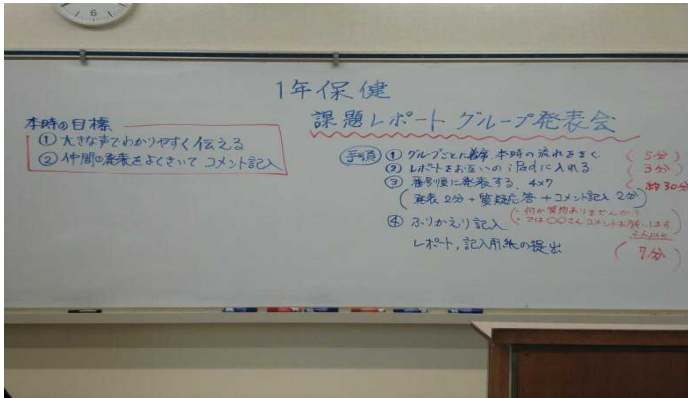 6
1年保健
課題レポート グループ発表会
本時の目標
① 大きな声でわかりやすく伝える
② 仲間の発表をよくきいて コメント記入
手順
① グループごとに着席 本時の流れをきく (5分)
② レポートをお互いの iPadに入れる (3分)
③ 番号順に発表する、4×7 (約30分)
(発表2分+質疑応答+コメント記入2分)
④ ふりかえり記入
・何か質問ありませんか?
・では○○さんコメントお願いします
レポート, 記入用紙の提出 (7分)